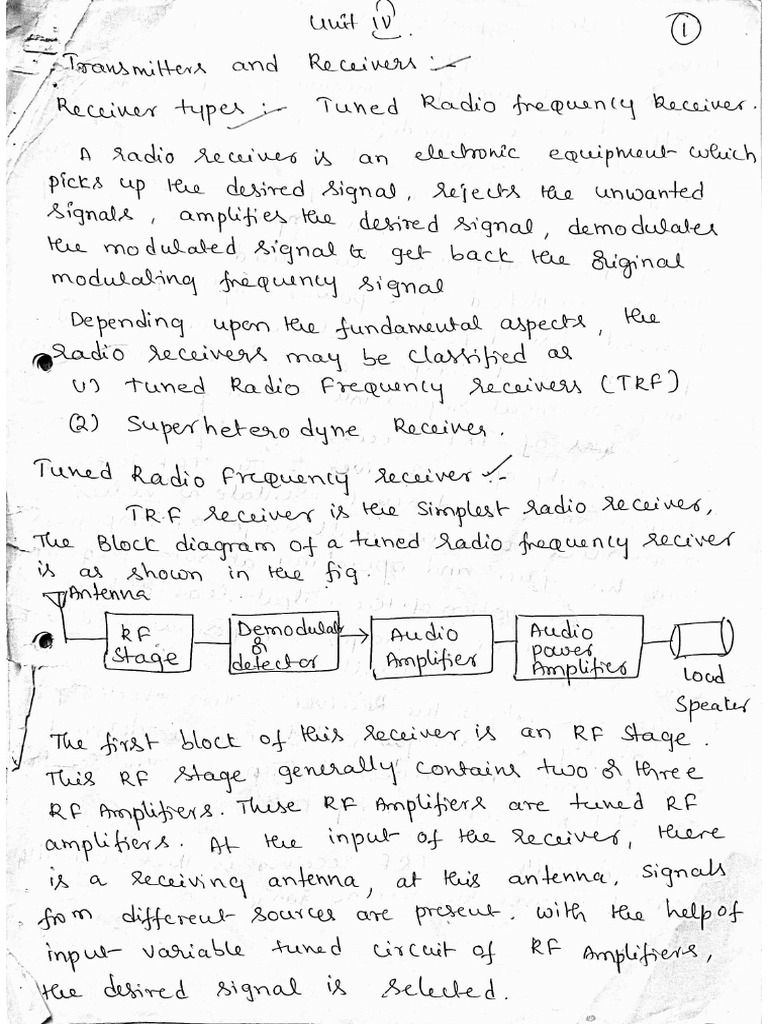 Unit IV.
1
Transmitters and Receivers :-
Receiver types :- Tuned Radio frequency Receiver.
A radio receiver is an electronic equipment which
picks up the desired signal, rejects the unwanted
signals, amplifies the desired signal, demodulates
the modulated signal & get back the original
modulating frequency signal
Depending upon the fundamental aspects, the
radio receivers may be classified as
(1) Tuned Radio Frequency receivers (TRF)
(2) Superheterodyne Receiver.
Tuned Radio Frequency receiver :-
TRF receiver is the simplest radio receiver,
The Block diagram of a tuned radio frequency reciver
is as shown in the fig.
Antenna
RF
Stage
Demodulat
or
detector
Audio
Amplifier
Audio
power
Amplifier
Load
Speaker
The first block of this receiver is an RF Stage.
This RF stage generally contains two or three
RF Amplifiers. These RF Amplifiers are tuned RF
amplifiers. At the input of the receiver, there
is a receiving antenna, at this antenna, signals
from different sources are present. with the help of
input variable tuned circuit of RF Amplifiers,
the desired signal is selected.